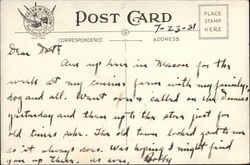 POST CARD
PLACE STAMP HERE
CORRESPONDENCE
ADDRESS
7-23-31
Dear
Am up here in Mason for the
week at my cousins farm with my family,
dog and all. Went over & called on the
yesterday and then up to the store just for
old times sake. The old town looked good to me
as it always does. Was hoping I might find
you up there. As ever,